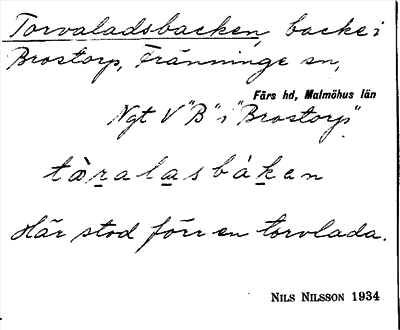 Torvaladsbacken, backe i
Brostorp, Fränninge sn,
Färs hd, Malmöhus län
Ngt V "B" i "Brostorp".
tòralasbáken
Här stod förr en torvlada.
NILS NILSSON 1934